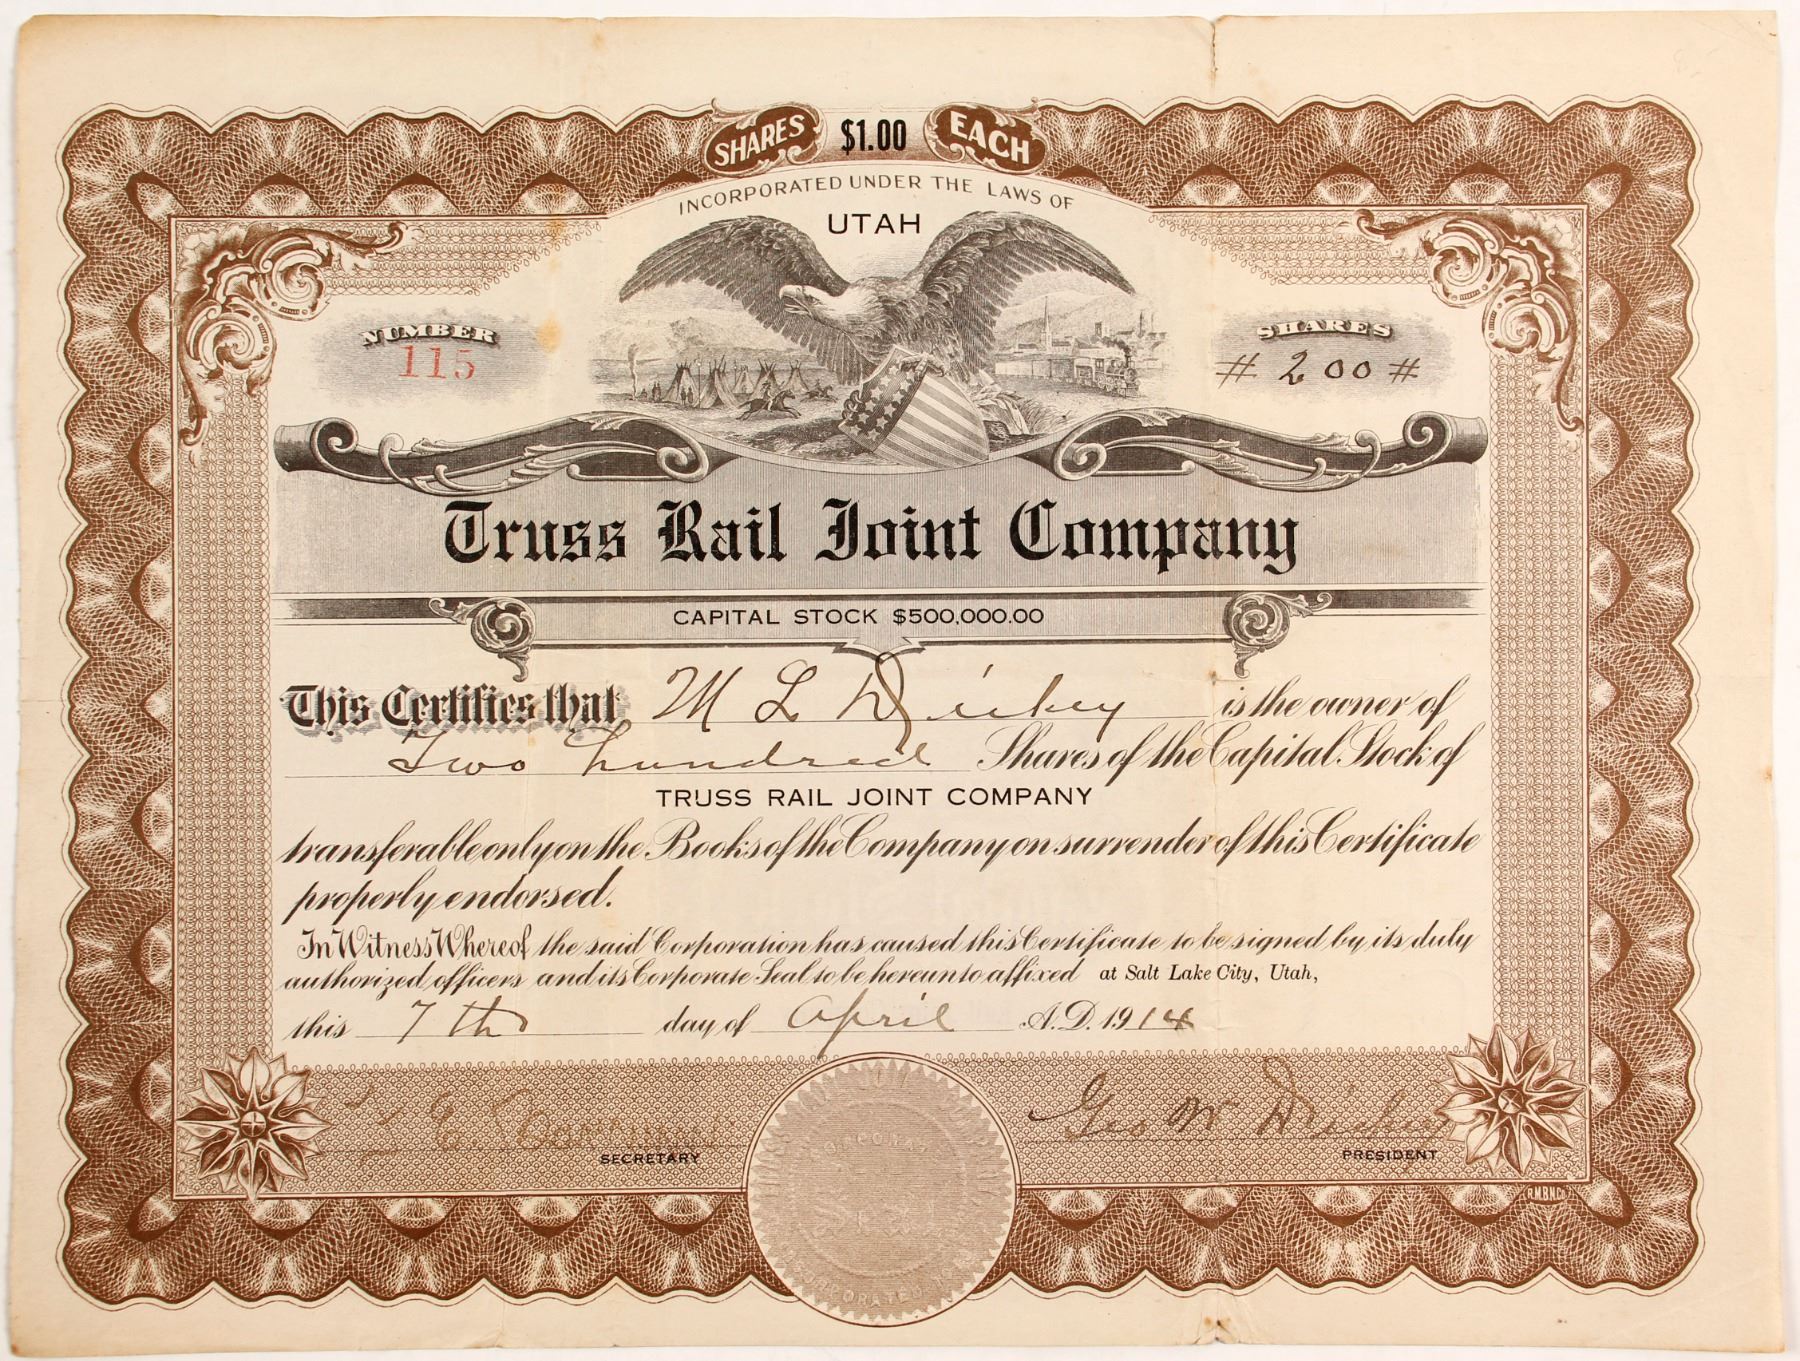 SHARES $1.00 EACH
INCORPORATED UNDER THE LAWS OF
UTAH
NUMBER
115
SHARES
# 200 #
Truss Rail Joint Company
CAPITAL STOCK $500,000.00
This Certifies that M L Dickey is the owner of
Two hundred Shares of the Capital Stock of
TRUSS RAIL JOINT COMPANY
transferable only on the Books of the Company on surrender of this Certificate
properly endorsed.
In Witness Whereof the said Corporation has caused this Certificate to be signed by its duly
authorized officers and its Corporate Seal to be hereunto affixed at Salt Lake City, Utah,
this 7th day of April A.D. 1914
Geo W Dickey
SECRETARY
PRESIDENT
R.M.B.N.Co.